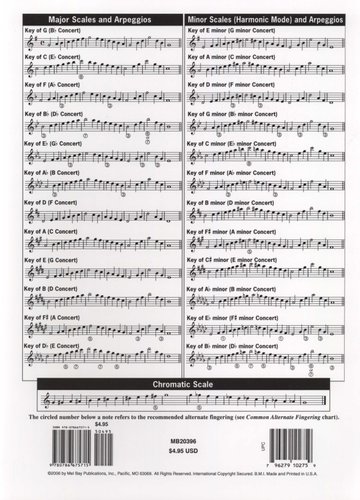 Major Scales and Arpeggios
Key of G (B♭ Concert)
Key of C (E♭ Concert)
Key of F (A♭ Concert)
Key of B♭ (D♭ Concert)
Key of E♭ (G♭ Concert)
Key of A♭ (B Concert)
Key of D (F Concert)
Key of A (C Concert)
Key of E (G Concert)
Key of B (D Concert)
Key of F♯ (A Concert)
Key of D♭ (E Concert)
Minor Scales (Harmonic Mode) and Arpeggios
Key of E minor (G minor Concert)
Key of A minor (C minor Concert)
Key of D minor (F minor Concert)
Key of G minor (B♭ minor Concert)
Key of C minor (E♭ minor Concert)
Key of F minor (A♭ minor Concert)
Key of B minor (D minor Concert)
Key of F♯ minor (A minor Concert)
Key of C♯ minor (E minor Concert)
Key of A♭ minor (B minor Concert)
Key of E♭ minor (F♯ minor Concert)
Key of B♭ minor (D♭ minor Concert)
Chromatic Scale
The circled number below a note refers to the recommended alternate fingering (see Common Alternate Fingering chart).
$4.95
50495
9 780786 675715
MB20396
$4.95 USD
UPC
7 96279 10275 9
©2006 by Mel Bay Publications, Inc., Pacific, MO 63069. All Rights Reserved. International Copyright Secured. B.M.I. Made and Printed in U.S.A.